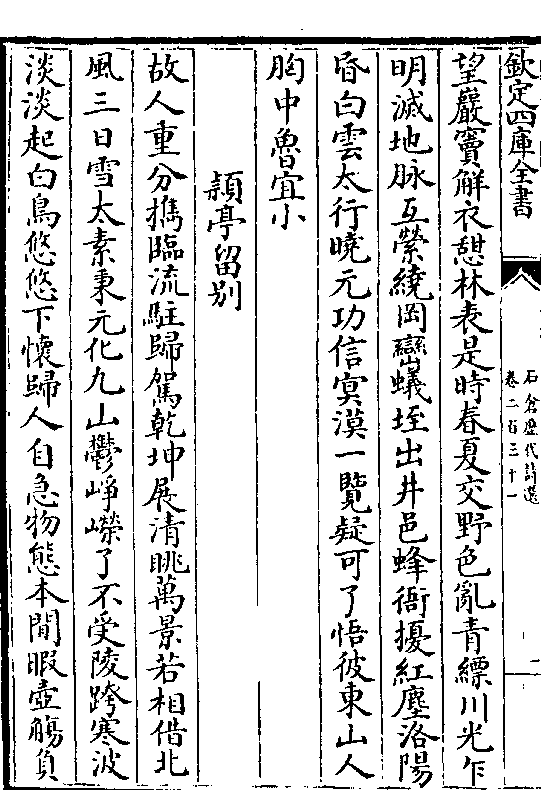 欽定四庫全書
石倉歷代詩選
卷二百三十一
望巖竇解衣憇林表是時春夏交野色亂青縹川光乍
明滅地脉互縈繞岡巒蟻垤出井邑蜂衙擾紅塵洛陽
昏白雲太行曉元功信㝠漠一覽疑可了悟彼東山人
胸中魯宜小
潁亭留别
故人重分攜臨流駐歸駕乾坤展清眺萬景若相借北
風三日雪太素秉元化九山鬱峥嶸了不受陵跨寒波
淡淡起白鳥悠悠下懷歸人自急物態本閒暇壺觴負